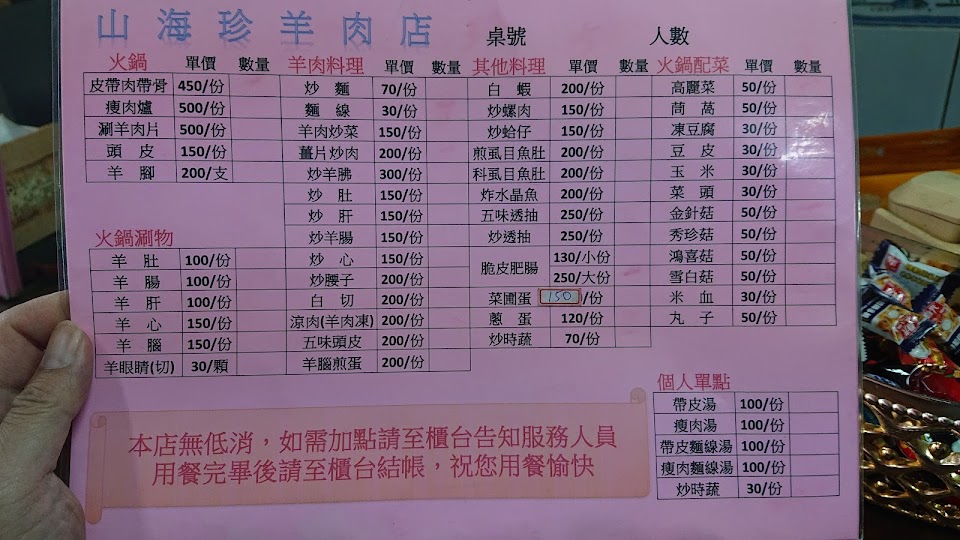 山海珍羊肉店
桌號 人數
火鍋 單價 數量
皮帶肉帶骨 450/份
瘦肉爐 500/份
涮羊肉片 500/份
頭皮 150/份
羊腳 200/支
火鍋涮物
羊肚 100/份
羊腸 100/份
羊肝 100/份
羊心 150/份
羊腦 150/份
羊眼睛(切) 30/顆
羊肉料理 單價 數量
炒麵 70/份
麵線 30/份
羊肉炒菜 150/份
薑片炒肉 200/份
炒羊胇 300/份
炒肚 150/份
炒肝 150/份
炒羊腸 150/份
炒心 150/份
炒腰子 200/份
白切 200/份
涼肉(羊肉凍) 200/份
五味頭皮 200/份
羊腦煎蛋 200/份
其他料理 單價 數量
白蝦 200/份
炒螺肉 150/份
炒蛤仔 150/份
煎虱目魚肚 200/份
科虱目魚肚 200/份
炸水晶魚 200/份
五味透抽 250/份
炒透抽 250/份
脆皮肥腸 130/小份
250/大份
菜圃蛋 150/份
蔥蛋 120/份
炒時蔬 70/份
火鍋配菜 單價 數量
高麗菜 50/份
茼萵 50/份
凍豆腐 30/份
豆皮 30/份
玉米 30/份
菜頭 30/份
金針菇 50/份
秀珍菇 50/份
鴻喜菇 50/份
雪白菇 50/份
米血 30/份
丸子 50/份
個人單點
帶皮湯 100/份
瘦肉湯 100/份
帶皮麵線湯 100/份
瘦肉麵線湯 100/份
炒時蔬 30/份
本店無低消，如需加點請至櫃台告知服務人員
用餐完畢後請至櫃台結帳，祝您用餐愉快